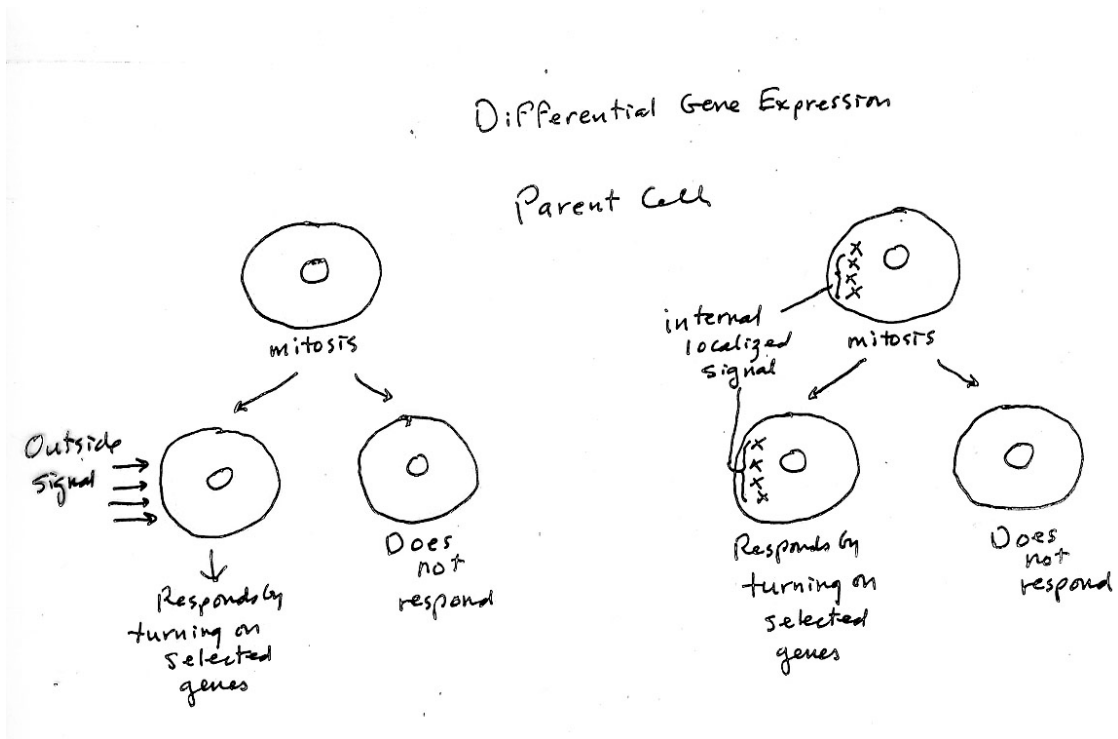 Differential Gene Expression
Parent Cells
mitosis
Outside
signal
Responds by
turning on
selected
genes
Does
not
respond
internal
localized
signal
x
x
x
x
mitosis
x
x
x
x
Responds by
turning on
selected
genes
Does
not
respond